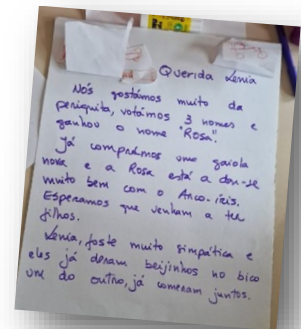 Querida Xénia
Nós gostámos muito da
periquita, votámos 3 nomes e
ganhou o nome "Rosa".
Já comprámos uma gaiola
nova e a Rosa está a dar-se
muito bem com o Arco-íris.
Esperamos que venham a ter
filhos.
Xénia, foste muito simpática e
eles já deram beijinhos no bico
um do outro, já comeram juntos.